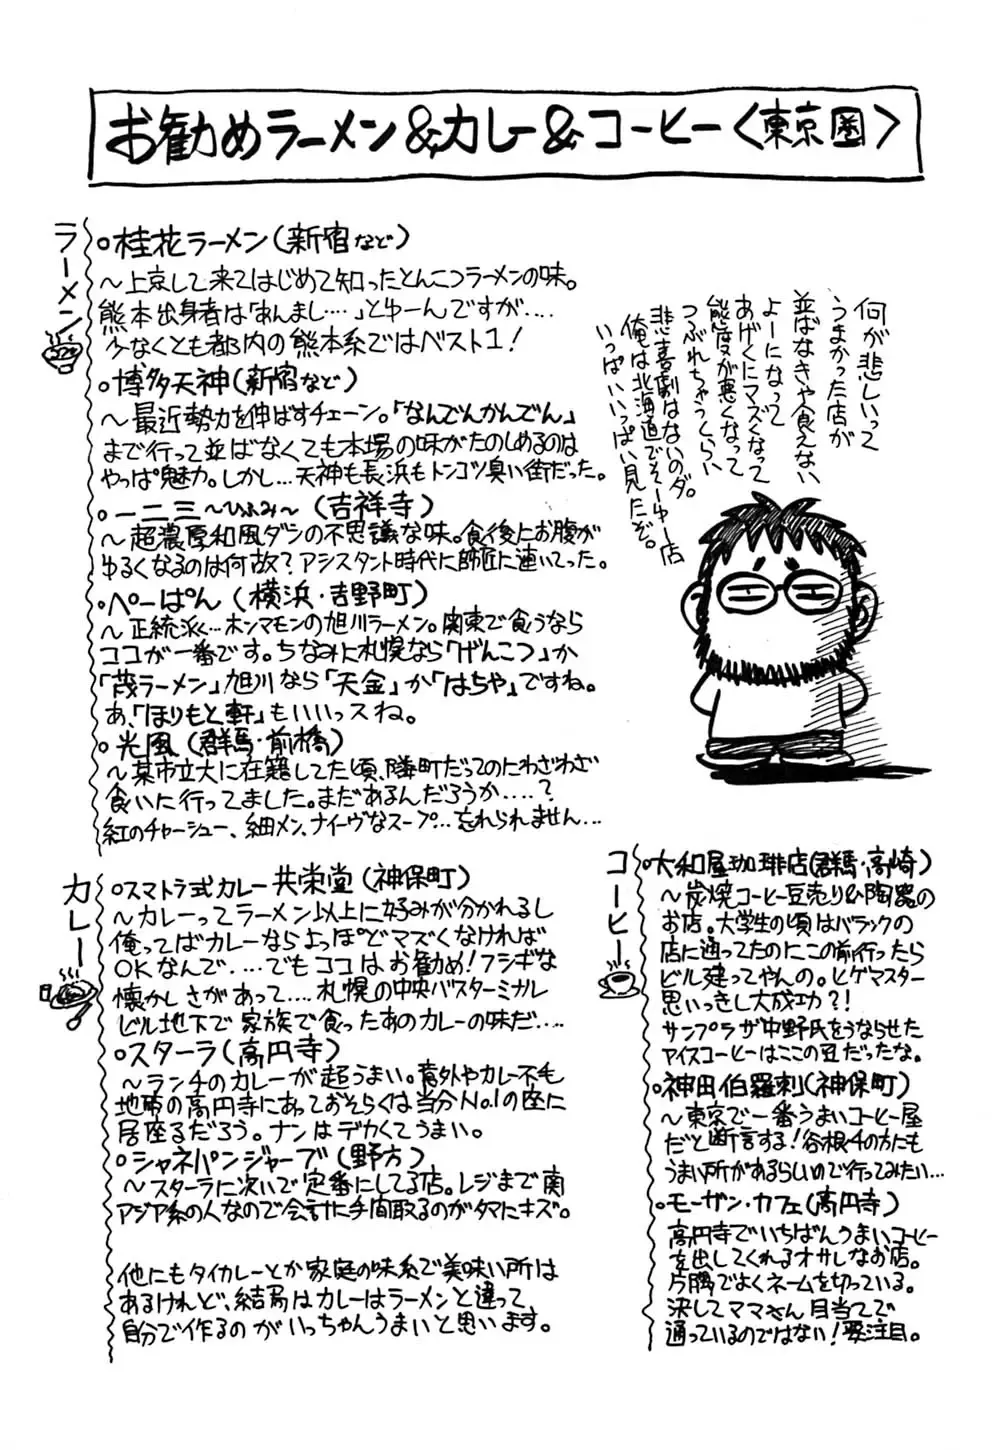 お勧めラーメン&カレー&コーヒー〈東京圏〉
ラーメン
○桂花ラーメン(新宿など)
〜上京して来てはじめて知ったとんこつラーメンの味。
熊本出身者は「あんまし‥‥」とゆーんですが‥‥
少なくとも都内の熊本系ではベスト1!
○博多天神(新宿など)
〜最近勢力を伸ばすチェーン。「なんでんかんでん」
まで行って並ばなくても本場の味がたのしめるのは
やっぱ魅力。しかし…天神も長浜もトンコツ臭い街だった。
○一二三〜ひふみ〜(吉祥寺)
〜超濃厚和風ダシの不思議な味。食後にお腹が
ゆるくなるのは何故?アシスタント時代に師匠に連いてった。
○ぺーぱん(横浜・吉野町)
〜正統派…ホンマモンの旭川ラーメン。関東で食うなら
ココが一番です。ちなみに札幌なら「げんこつ」か
「茂ラーメン」旭川なら「天金」か「はちや」ですね。
あ、「ほりもと軒」もいいっスね。
○光風(群馬・前橋)
〜某市立大に在籍してた頃、隣町だってのにわざわざ
食いに行ってました。まだあるんだろうか‥‥?
紅のチャーシュー、細メン、ナイーヴなスープ…忘れられません…
何が悲しいって
うまかった店が
並ばなきゃ食えない
よーになって
あげくにマズくなって
態度が悪くなって
つぶれちゃうくらい
悲喜劇はないのダ。
俺は北海道でそーゆー店
いっぱいいっぱい見たぞ。
カレー
○スマトラ式カレー共栄堂(神保町)
〜カレーってラーメン以上に好みが分かれるし
俺ってばカレーならよっぽどマズくなければ
OKなんで‥‥でもココはお勧め!フシギな
懐かしさがあって‥‥札幌の中央バスターミナル
ビル地下で家族で食ったあのカレーの味だ‥‥
○スターラ(高円寺)
〜ランチのカレーが超うまい。意外やカレー不毛
地帯の高円寺にあっておそらくは当分No.1の座に
居座るだろう。ナンはデカくてうまい。
○シャネパンジャーブ(野方)
〜スターラに次いで定番にしてる店。レジまで南
アジア系の人なので会計に手間取るのがタマにキズ。
他にもタイカレーとか家庭の味系で美味い所は
あるけれど、結局はカレーはラーメンと違って
自分で作るのがいっちゃんうまいと思います。
コーヒー
○大和屋珈琲店(群馬・高崎)
〜炭焼コーヒー豆売り&陶器の
お店。大学生の頃はバラックの
店に通ってたのにこの前行ったら
ビル建ってやんの。ヒゲマスター
思いっきし大成功?!
サンプラザ中野氏をうならせた
アイスコーヒーはここの豆だったな。
○神田伯剌西爾(神保町)
〜東京で一番うまいコーヒー屋
だと断言する!谷根千の方にも
うまい所があるらしいので行ってみたい…
○モーザン・カフェ(高円寺)
高円寺でいちばんうまいコーヒー
を出してくれるオサレなお店。
片隅でよくネームを切っている。
決してママさん目当てで
通っているのではない!要注目。